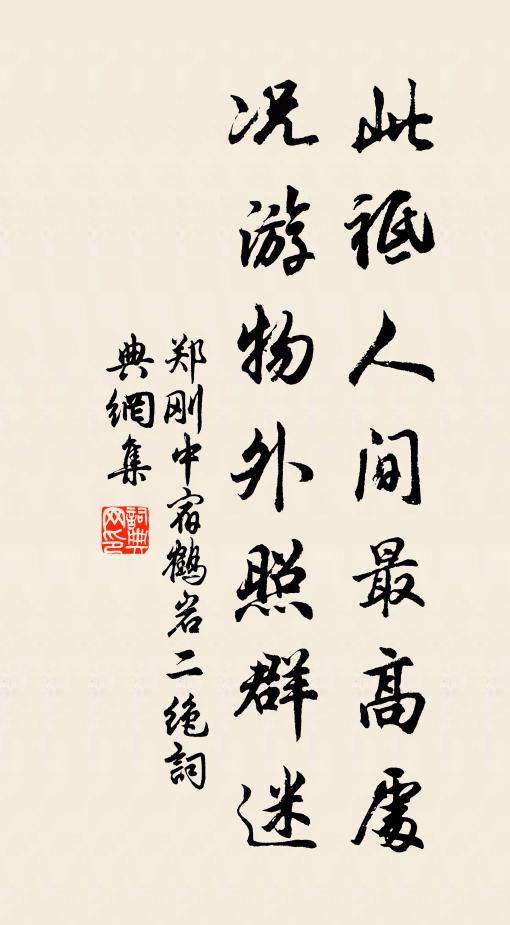 此祗人间最高處
况游物外照群迷
郑刚中宿鹤岩二绝詞
典網集
詞典网印